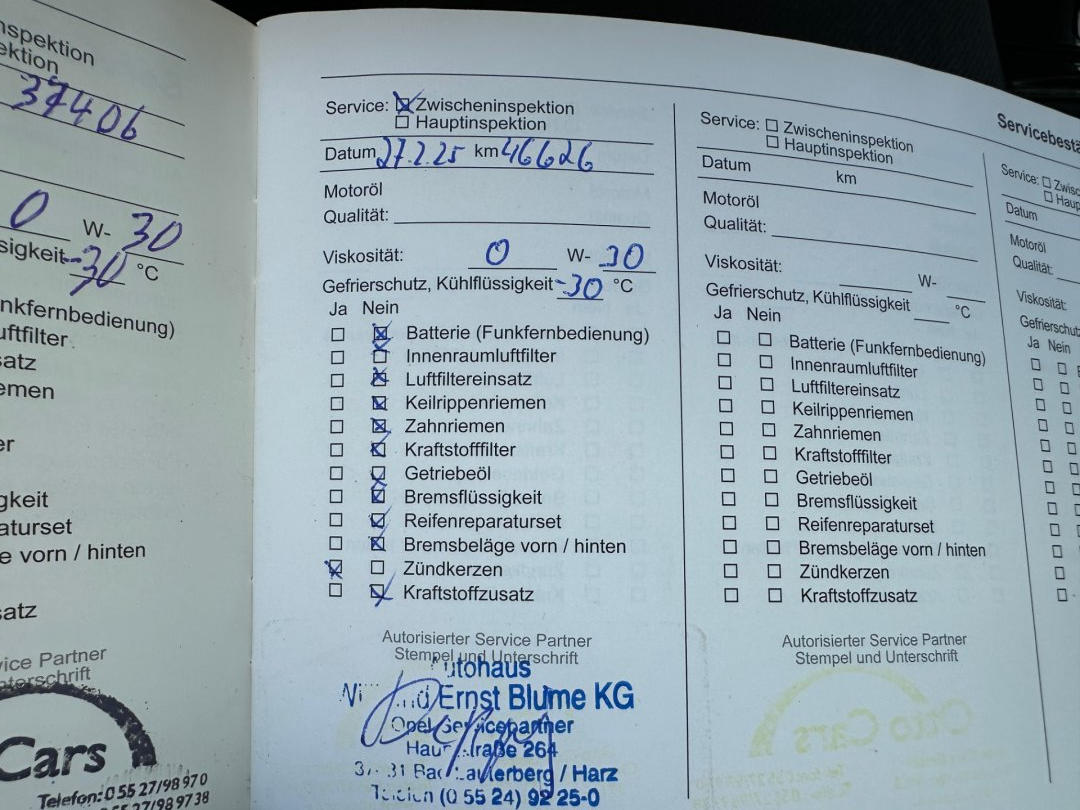 nspektion
ektion
37406
0 W- 30
sigkeit -30 °C
nkfernbedienung)
uftfilter
satz
emen
er
gkeit
araturset
e vorn / hinten
satz
vice Partner
nterschrift
Cars
Telefon: 0 55 27/98 97 0
55 27/98 97 38
Service: Zwischeninspektion
Hauptinspektion
Datum 27.2.25 km 46626
Motoröl
Qualität:
Viskosität: 0 W- 30
Gefrierschutz, Kühlflüssigkeit -30 °C
Ja Nein
Batterie (Funkfernbedienung)
Innenraumluftfilter
Luftfiltereinsatz
Keilrippenriemen
Zahnriemen
Kraftstofffilter
Getriebeöl
Bremsflüssigkeit
Reifenreparaturset
Bremsbeläge vorn / hinten
Zündkerzen
Kraftstoffzusatz
Autorisierter Service Partner
Stempel und Unterschrift
Autohaus
Ernst Blume KG
Opel Servicepartner
Hauptstraße 264
Bad Lauterberg / Harz
Telefon (0 55 24) 92 25-0
Service: Zwischeninspektion
Hauptinspektion
Datum km
Motoröl
Qualität:
Viskosität: W-
Gefrierschutz, Kühlflüssigkeit °C
Ja Nein
Batterie (Funkfernbedienung)
Innenraumluftfilter
Luftfiltereinsatz
Keilrippenriemen
Zahnriemen
Kraftstofffilter
Getriebeöl
Bremsflüssigkeit
Reifenreparaturset
Bremsbeläge vorn / hinten
Zündkerzen
Kraftstoffzusatz
Autorisierter Service Partner
Stempel und Unterschrift
Otto Cars
Servicebestä
Service: Zwisc
Haup
Datum
Motoröl
Qualität:
Viskosität:
Gefrierschut
Ja Nein